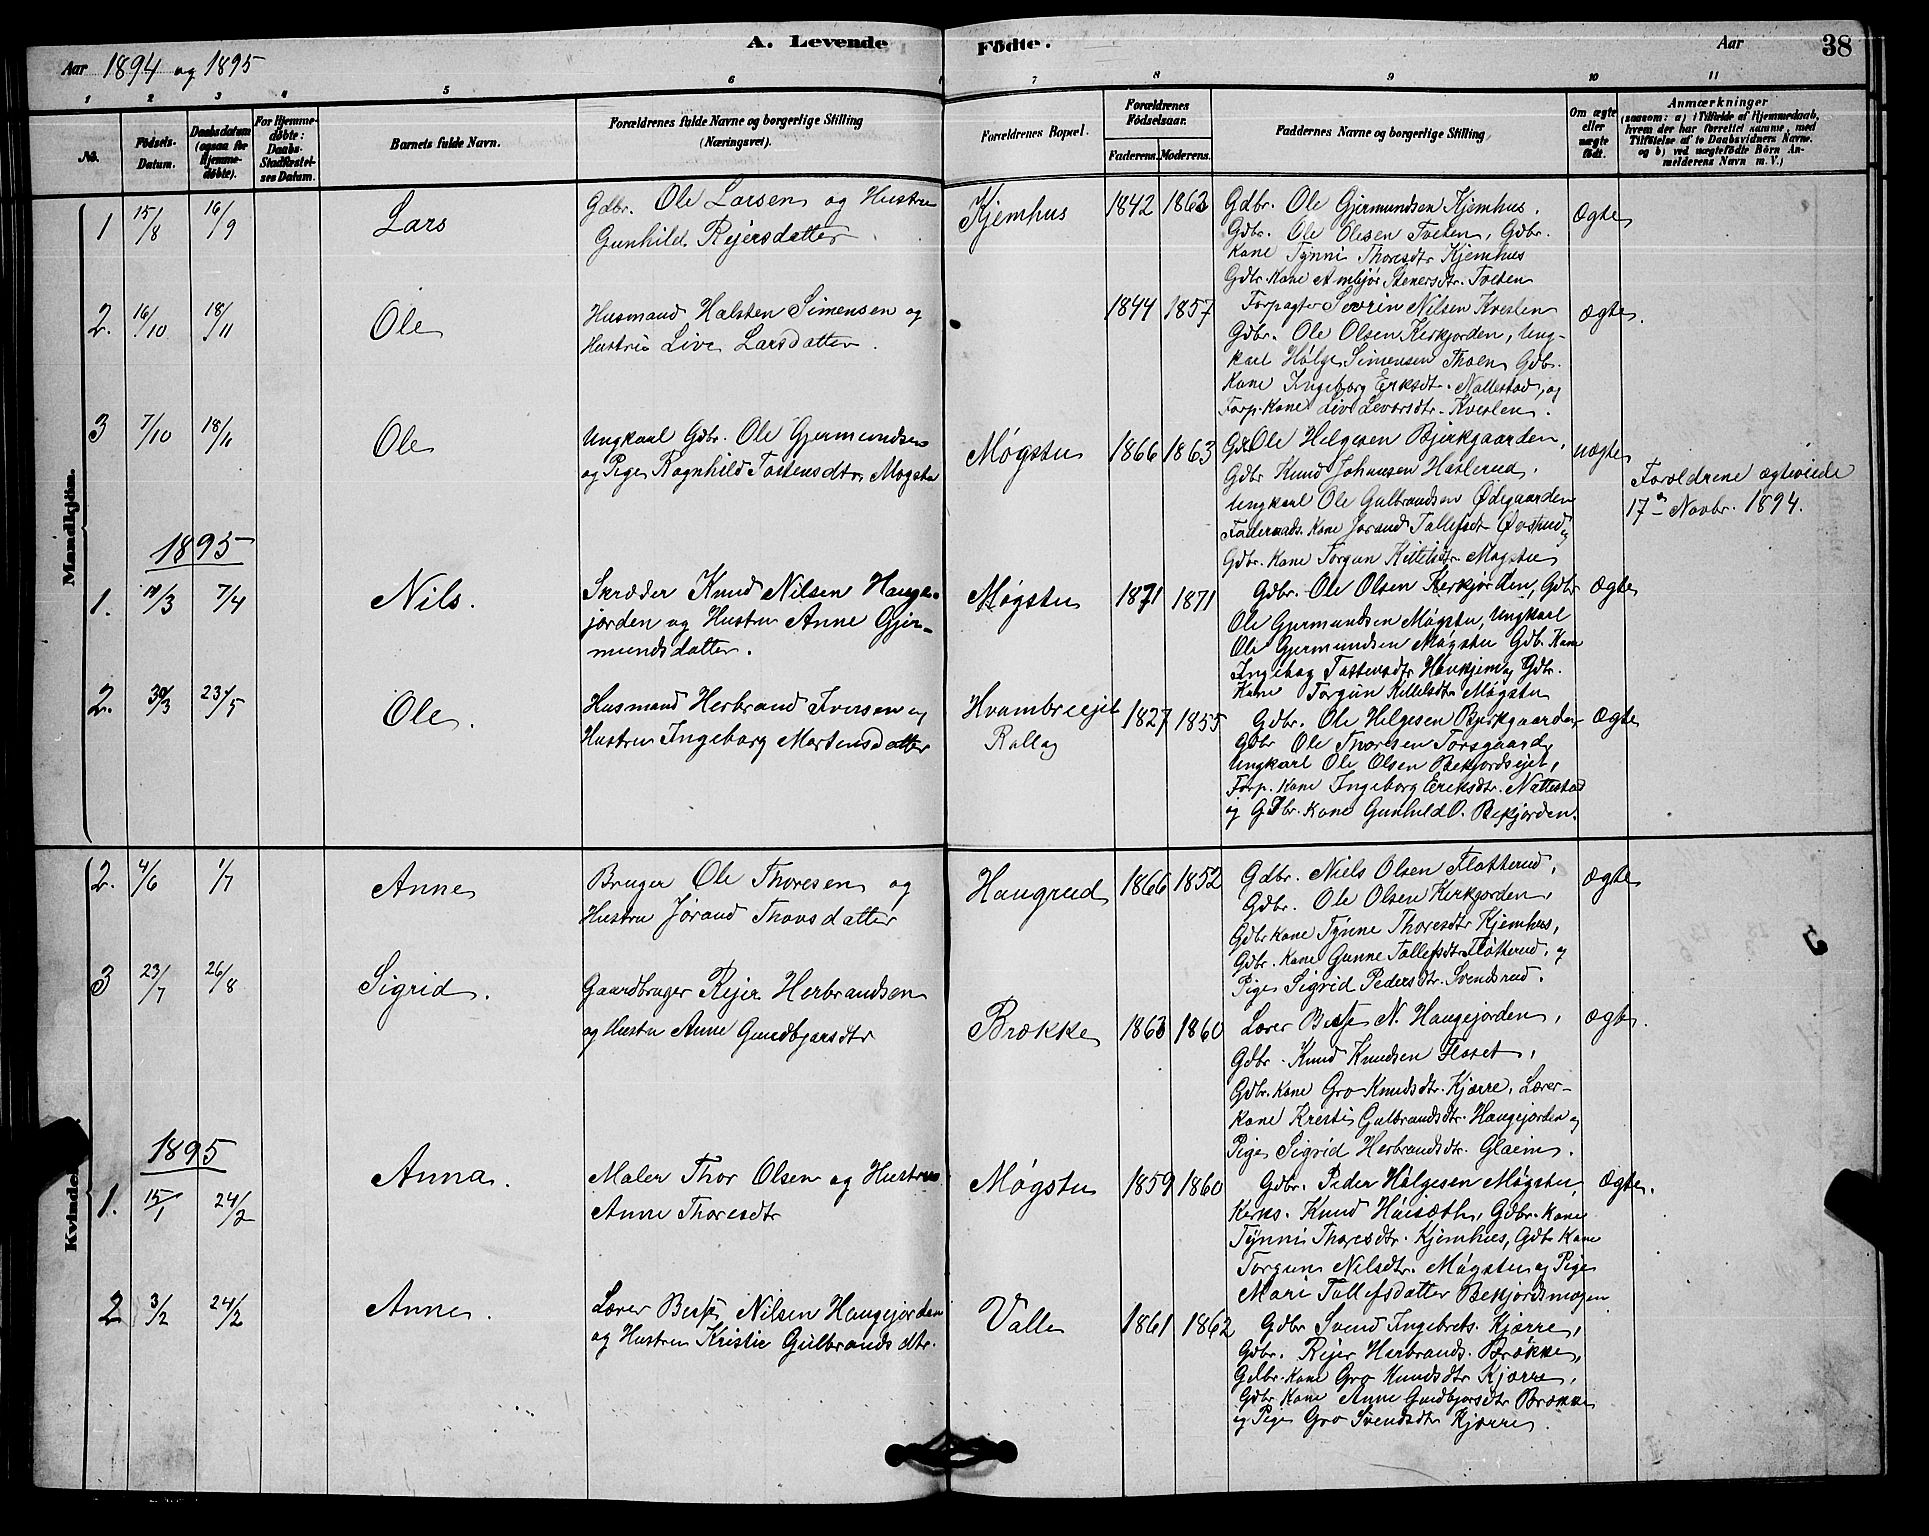 Aar 1894 og 1895
A. Levende Födte.
Aar
38
1 2 3 4 5 6 7 8 9 10 11
No.
Födsels-Datum.
Daabsdatum (ogsaa for Hjemme-døbte).
For Hjemme-døbte: Daabs-Stadfæstel-ses Datum.
Barnets fulde Navn.
Forældrenes fulde Navne og borgerlige Stilling (Næringsvei).
Forældrenes Bopæl.
Forældrenes Födselsaar.
Faderens. Moderens.
Faddernes Navne og borgerlige Stilling.
Om ægte eller uægte födt.
Anmærkninger
(saasom: a) i Tilfælde af Hjemmedaab, hvem der har forrettet samme, med Tilföielse af to Daabsvidners Navne, og b) ved uægtefödte Börn An-melderens Navn m. V.)
Mandkjön.
1 15/8 16/9 Lars
Gdbr. Ole Larsen og Hustru
Gunhild Rejersdatter
Kjemhus 1842 1863
Gdbr. Ole Gjermundsen Kjemhus.
Gdbr. Ole Olesen Tveten, Gdbr.
Kone Tynni Thoresdtr Kjemhus
Gdbr. Kone Ambjør Stenersdtr. Tveten
Ægte
2. 16/10 18/11 Ole
Husmand Halsten Simensen og
Hustru Live Larsdatter.
1844 1857
Forpagter Severin Nilsen Kveslen
Gdbr. Ole Olsen Kirkjorden, Ung-
karl Helge Simensen Thoen Gdbr.
Kone Ingeborg Eriksdtr. Nattestad, og
Forp. Kone Live Levorsdtr. Kveslen.
ægte.
3 7/10 18/11 Ole
Ungkarl Gdbr. Ole Gjermundsen
og Pige Ragnhild Tostensdtr. Møgstu
Møgstu 1866 1863
Gdbr Ole Helgesen Bjerkgaarden,
Gdbr Knud Johansen Haslerud.
Ungkarl Ole Gulbrandsen Ødegaarden
Kone Jorand Tollefsdt Øvstrud og
Gdbr. Kone Torgun Kittilsdtr. Møgstu
uægte
Forældrene ægteviede
17de Novbr. 1894.
1895
1. 3 7/4 Nils.
Skræder Knud Nilsen Hauge-
jorden og Hustru Anne Gjer-
mundsdatter.
Møgstu 1871 1871
Gdbr. Ole Olsen Kerkjorden, Gdbr
Ole Gjermundsen Møgstu, Ungkarl
Ole Gjermundsen Møgstu Gdb. Kone
Ingebog Tostensdtr Havkjem og Gdbr.
Kone Torgun Kittelsdtr Møgstu
Ægte
2. 30/3 23/5 Ole.
Husmand Herbrand Iversen og
Hustru Ingeborg Mortensdatter
Hvambreejet
Rollag
1827 1855
Gdbr. Ole Helgesen Bjerkgaarden
Gdbr Ole Thoresen Torsgaard,
Ungkarl Ole Olsen Bekjordsejet,
Forp. Kone Ingeborg Eriksdtr. Nattestad
og Gdbr. Kone Gunhild O. Bekjorden.
Ægte
Kvindekjön.
2. 4/6 1/7 Anne
Bruger Ole Thoresen og
Hustru Jorand Thorsdatter
Haugrud 1866 1852
Gdbr. Niels Olsen Flatterud,
Gdbr. Ole Olsen Kerkjorden,
Gdbr Kone Tynne Thoresdtr Kjemhus,
Gdbr. Kone Gunne Tollefsdtr Fløtterud, og
Pige Sigrid Pedersdtr. Svendsrud.
ægte
3 23/7 26/8 Sigrid.
Gaardbruger Rejer Herbrandsen
og Hustru Anne Gundbjørsdtr
Brække 1863 1860
Lærer N. Haugejorden,
Gdbr. Knud Knudsen Floset,
Gdbr. Kone Gro Knudsdtr. Kjørre, Lærer-
kone Kresti Gulbrandsdtr. Haugejorden og
Pige Sigrid Herbrandsdtr. Glaim.
ægte.
1895
1. 15/1 24/2 Anna.
Maler Thor Olsen og Hustru
Anne Thoresdtr
Møgstu 1859 1860
Gdbr. Peder Helgesen Møgstu,
Kirks. Knud Huseth, Gdbr. Kone
Tynni Thoresdtr. Kjemhus, Gdbr Kone
Torgun Nilsdtr. Møgstu og Pige
Mari Tollefsdatter Bekjordsmogen
Ægte.
2 3/2 24/2 Anne.
Lærer Nilsen Haugejorden
og Hustru Kristie Gulbrandsdtr.
Valle 1861 1862
Gdbr Svend Ingebrets. Kjørre,
Gdbr. Rejer Herbrands. Brække,
Gdbr. Kone Gro Knudsdtr Kjørre,
Gdbr. Kone Anne Gundbjørsdtr Brække
og Pige Gro Svendsdtr Kjørre.